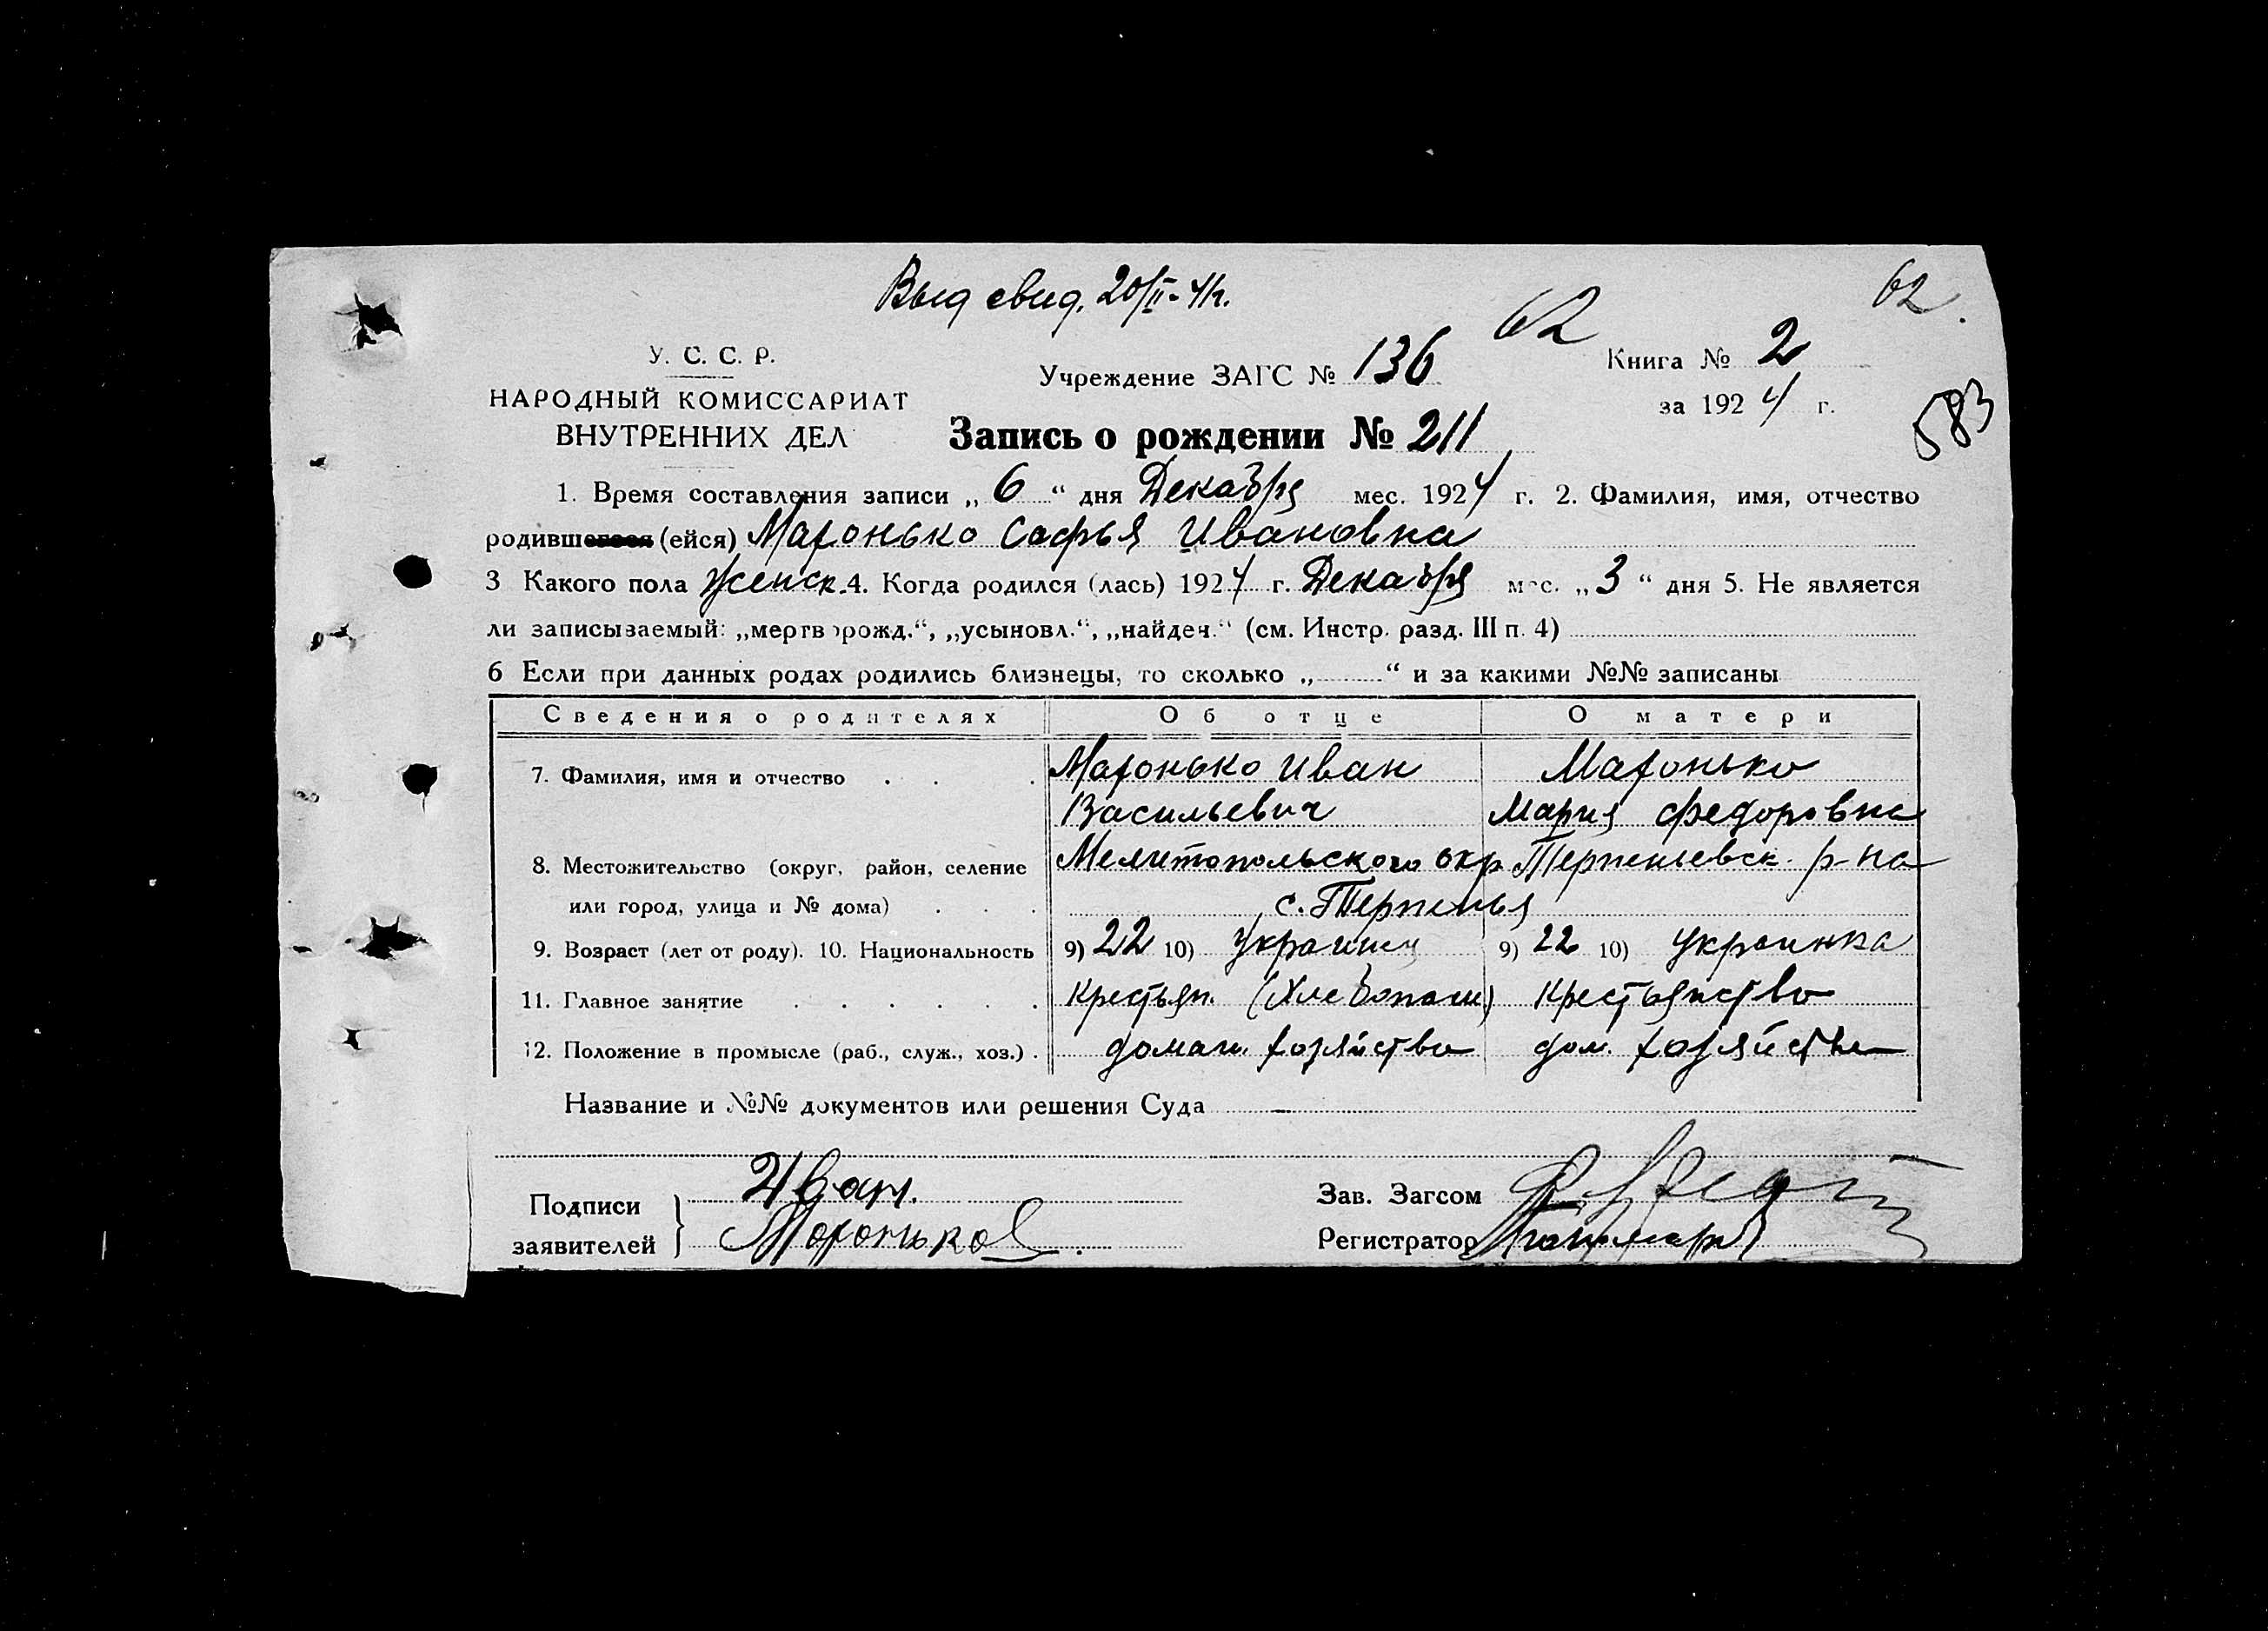 Выд свид. 20/II-41г.
62
62.
У. С. С. Р.
НАРОДНЫЙ КОМИССАРИАТ
ВНУТРЕННИХ ДЕЛ
Учреждение ЗАГС № 136
Книга № 2
за 1924 г.
583
Запись о рождении № 211
1. Время составления записи „ 6 “ дня Декабря мес. 1924 г. 2. Фамилия, имя, отчество
родившегося (ейся) Махонько Софья Ивановна
3 Какого пола Женск. 4. Когда родился (лась) 1924 г. Декабря мес. „ 3 “ дня 5. Не является
ли записываемый: „мертворожд.“, „усыновл.“, „найден.“ (см. Инстр. разд. III п. 4)
6 Если при данных родах родились близнецы, то сколько „ “ и за какими №№ записаны
Сведения о родителях Об отце О матери
7. Фамилия, имя и отчество . . . Махонько Иван Махонько
Васильевич Мария Федоровна
8. Местожительство (округ, район, селение Мелитопольского окр Терпеньевск. р-на
или город, улица и № дома) . . . с. Терпенья
9. Возраст (лет от роду). 10. Национальность 9) 22 10) Украинец 9) 22 10) Украинка
11. Главное занятие . . . . . . Крестьян. (Хлебопаш) Крестьянство
12. Положение в промысле (раб., служ., хоз.) . домаш. хозяйство дом. хозяйство
Название и №№ документов или решения Суда —
Подписи
заявителей
Иван
Махонько
Зав. Загсом
Регистратор